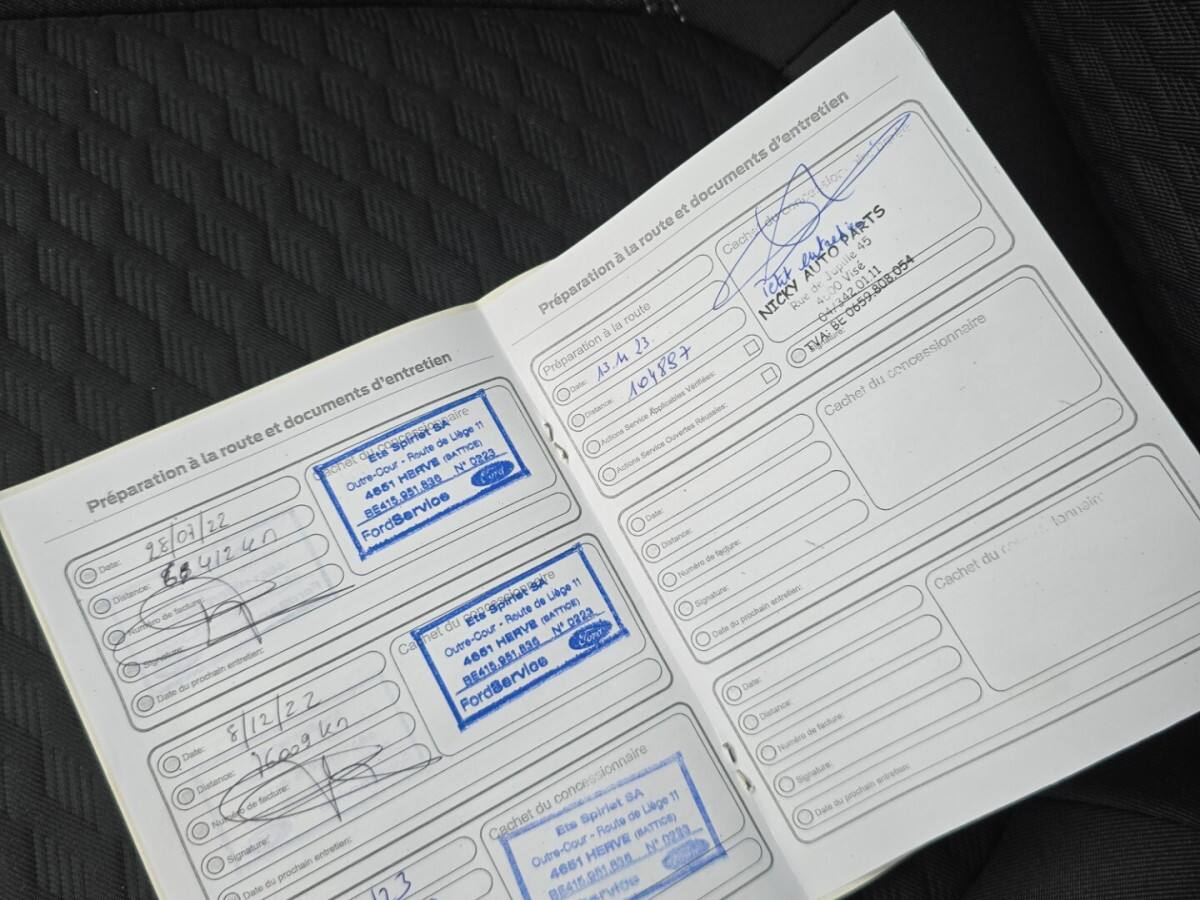 Préparation à la route et documents d'entretien
Date: 28/07/22
Distance: 412 km
Numéro de facture:
Signature:
Date du prochain entretien:
Cachet du concessionnaire
Ets Spirlet SA
Outre-Cour - Route de Liège 11
4651 HERVE (BATTICE)
BE415.951.836 N° 0223
FordService Ford
Date: 8/12/22
Distance: 76009 km
Numéro de facture:
Signature:
Date du prochain entretien:
Cachet du concessionnaire
Ets Spirlet SA
Outre-Cour - Route de Liège 11
4651 HERVE (BATTICE)
BE415.951.836 N° 0223
FordService Ford
23
Cachet du concessionnaire
Ets Spirlet SA
Outre-Cour - Route de Liège 11
4651 HERVE (BATTICE)
BE415.951.836 N° 0223
FordService Ford
Préparation à la route et documents d'entretien
Préparation à la route
Date: 13.11.23.
Distance: 104897
Actions Service Applicables Vérifiées:
Actions Service Ouvertes Résolues:
Cachet du concessionnaire
Petit entretien
NICKY AUTO PARTS
Rue de Jupille 45
4600 Visé
04/342 01 11
TVA: BE 0659.808.054
Signature:
Date:
Distance:
Numéro de facture:
Signature:
Date du prochain entretien:
Cachet du concessionnaire
Date:
Distance:
Numéro de facture:
Signature:
Date du prochain entretien:
Cachet du concessionnaire